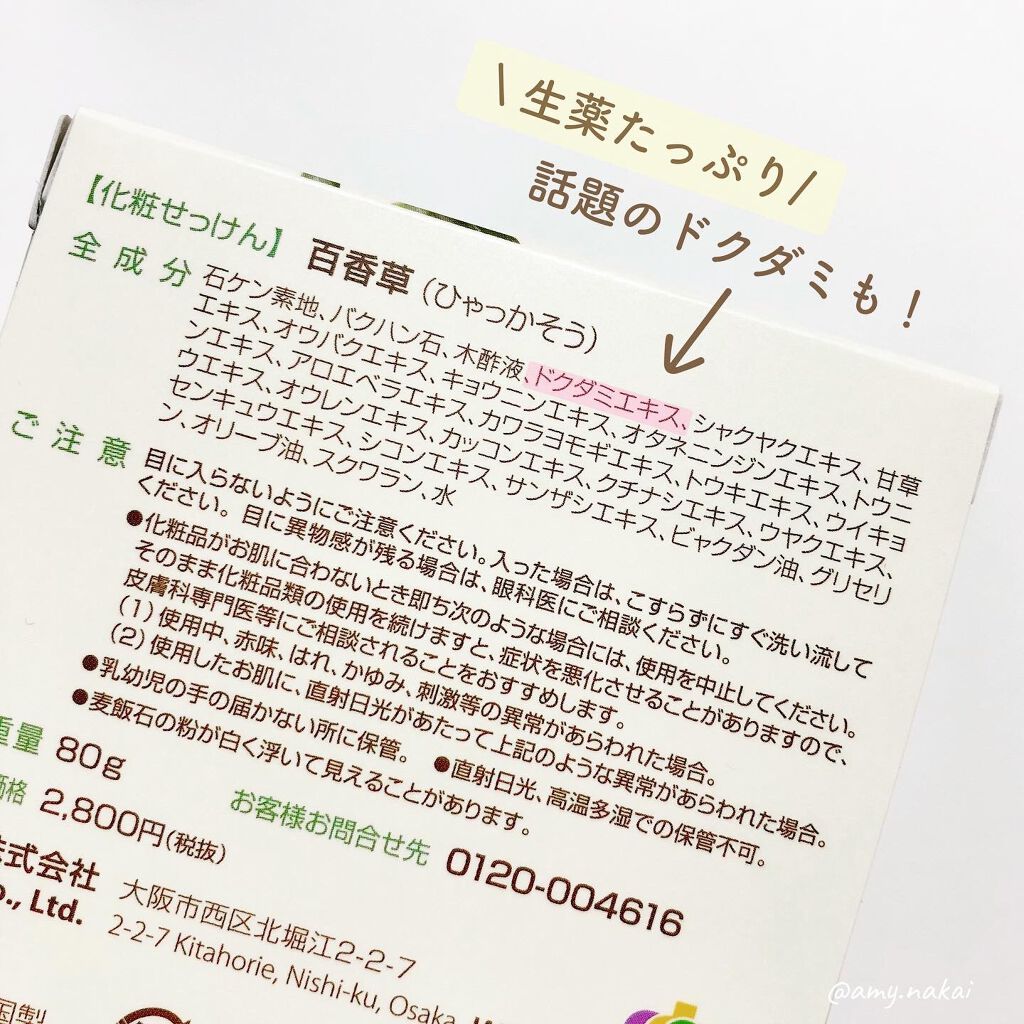 \生薬たっぷり/
話題のドクダミも!
【化粧せっけん】 百香草 (ひゃっかそう)
全成分 石ケン素地、バクハン石、木酢液、ドクダミエキス、シャクヤクエキス、甘草
エキス、オウバクエキス、キョウニンエキス、オタネニンジンエキス、トウニ
ンエキス、アロエベラエキス、カワラヨモギエキス、トウキエキス、ウイキョ
ウエキス、オウレンエキス、カッコンエキス、クチナシエキス、ウヤクエキス、
センキュウエキス、シコンエキス、サンザシエキス、ビャクダン油、グリセリ
ン、オリーブ油、スクワラン、水
ご注意 目に入らないようにご注意ください。入った場合は、こすらずにすぐ洗い流して
ください。目に異物感が残る場合は、眼科医にご相談ください。
●化粧品がお肌に合わないとき即ち次のような場合には、使用を中止してください。
そのまま化粧品類の使用を続けますと、症状を悪化させることがありますので、
皮膚科専門医等にご相談されることをおすすめします。
(1)使用中、赤味、はれ、かゆみ、刺激等の異常があらわれた場合。
(2)使用したお肌に、直射日光があたって上記のような異常があらわれた場合。
●乳幼児の手の届かない所に保管。 ●直射日光、高温多湿での保管不可。
●麦飯石の粉が白く浮いて見えることがあります。
重量 80g
価格 2,800円(税抜)
お客様お問合せ先 0120-004616
株式会社 大阪市西区北堀江2-2-7
., Ltd. 2-2-7 Kitahorie, Nishi-ku, Osaka
国製
@amy.nakai